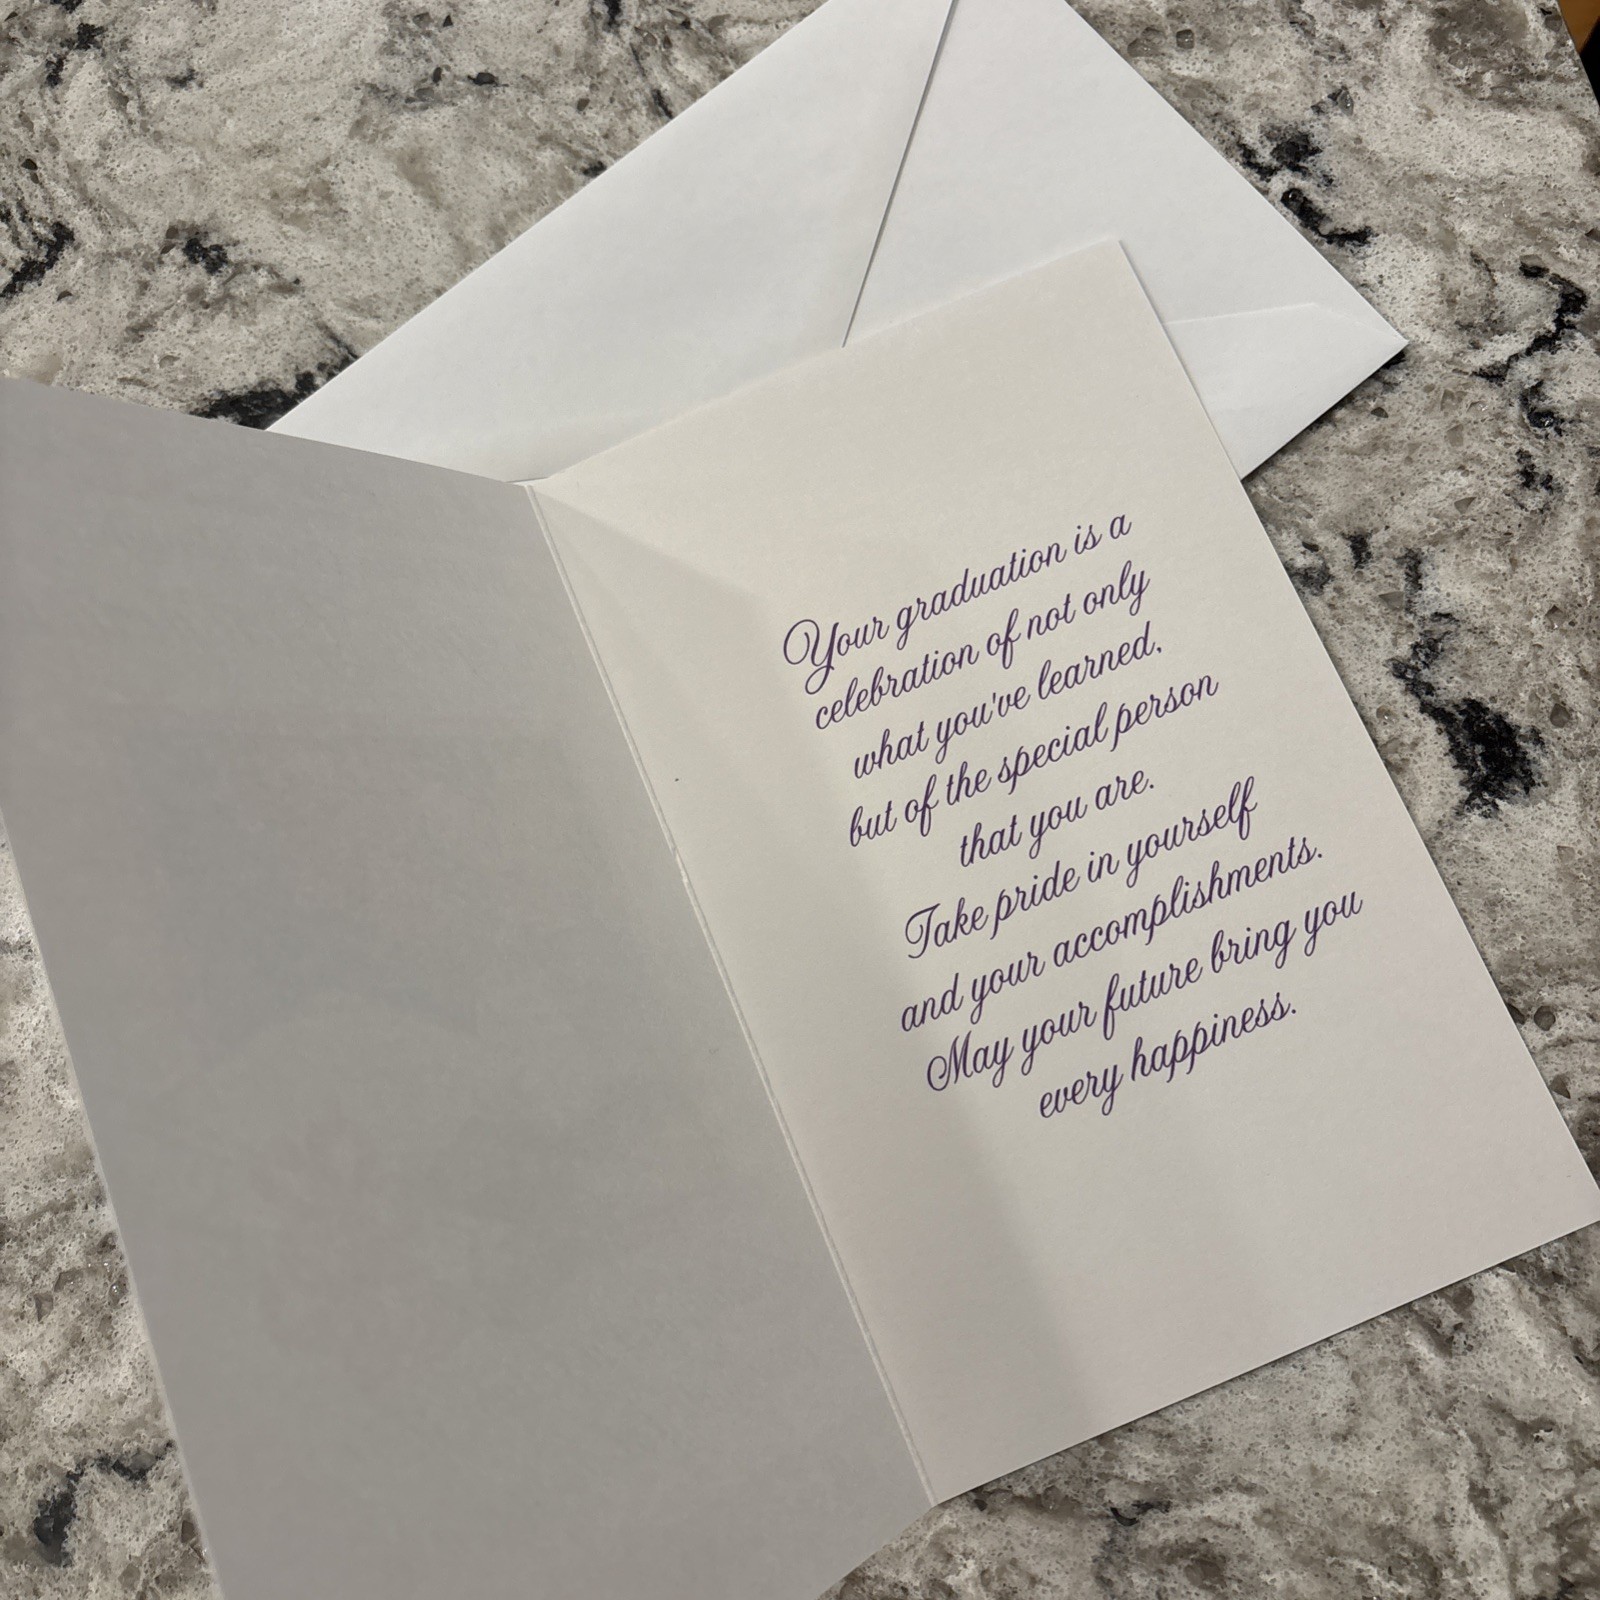 Your graduation is a
celebration of not only
what you've learned,
but of the special person
that you are.
Take pride in yourself
and your accomplishments.
May your future bring you
every happiness.